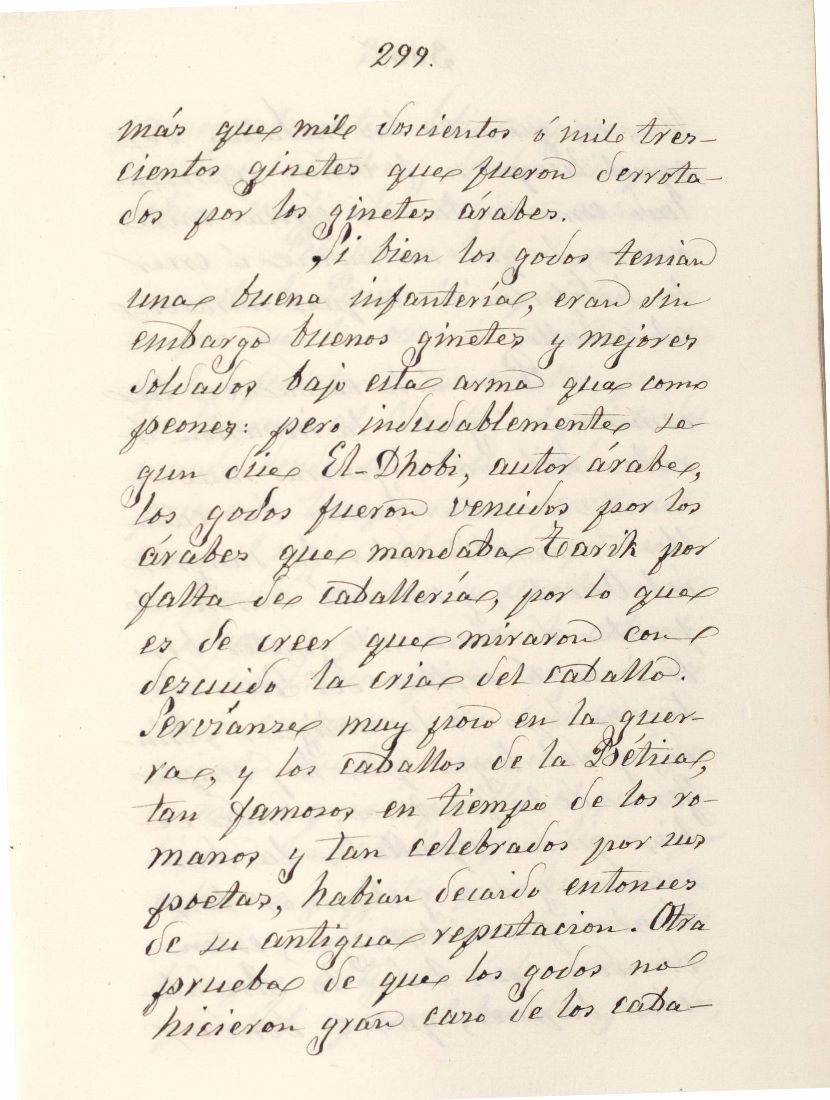 299.
más que mil doscientos ó mil tres-
cientos ginetes que fueron derrota-
dos por los ginetes árabes.
Si bien los godos tenian
una buena infantería, eran sin
embargo buenos ginetes y mejores
soldados bajo esta arma que como
peones: pero indudablemente se-
gun dice El-Dhobi, autor árabe,
los godos fueron vencidos por los
árabes que mandaba Tarik por
falta de caballería, por lo que
es de creer que miraron con
descuido la cria del caballo.
Servíanse muy poco en la guer-
ra, y los caballos de la Bética,
tan famosos en tiempo de los ro-
manos y tan celebrados por sus
poetas, habian decaido entonces
de su antigua reputacion. Otra
prueba de que los godos no
hicieron gran caso de los caba-